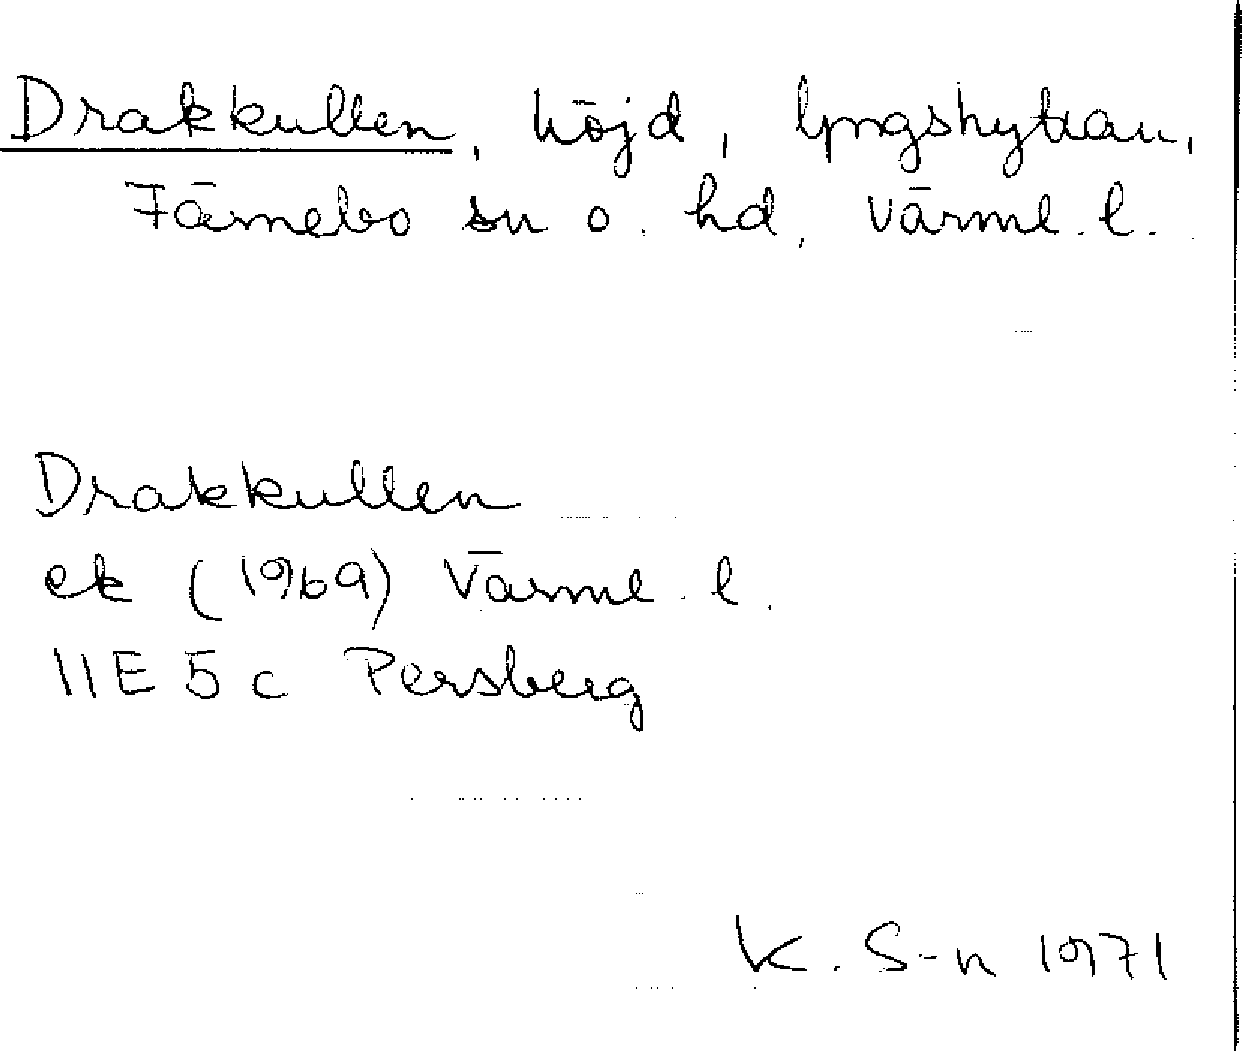 Drakkullen, höjd, lyngshyttan,
Färnebo sn o. hd, Värml. l.
Drakkullen
ek (1969) Värml. l.
11E 5c Persberg
K. S-n 1971